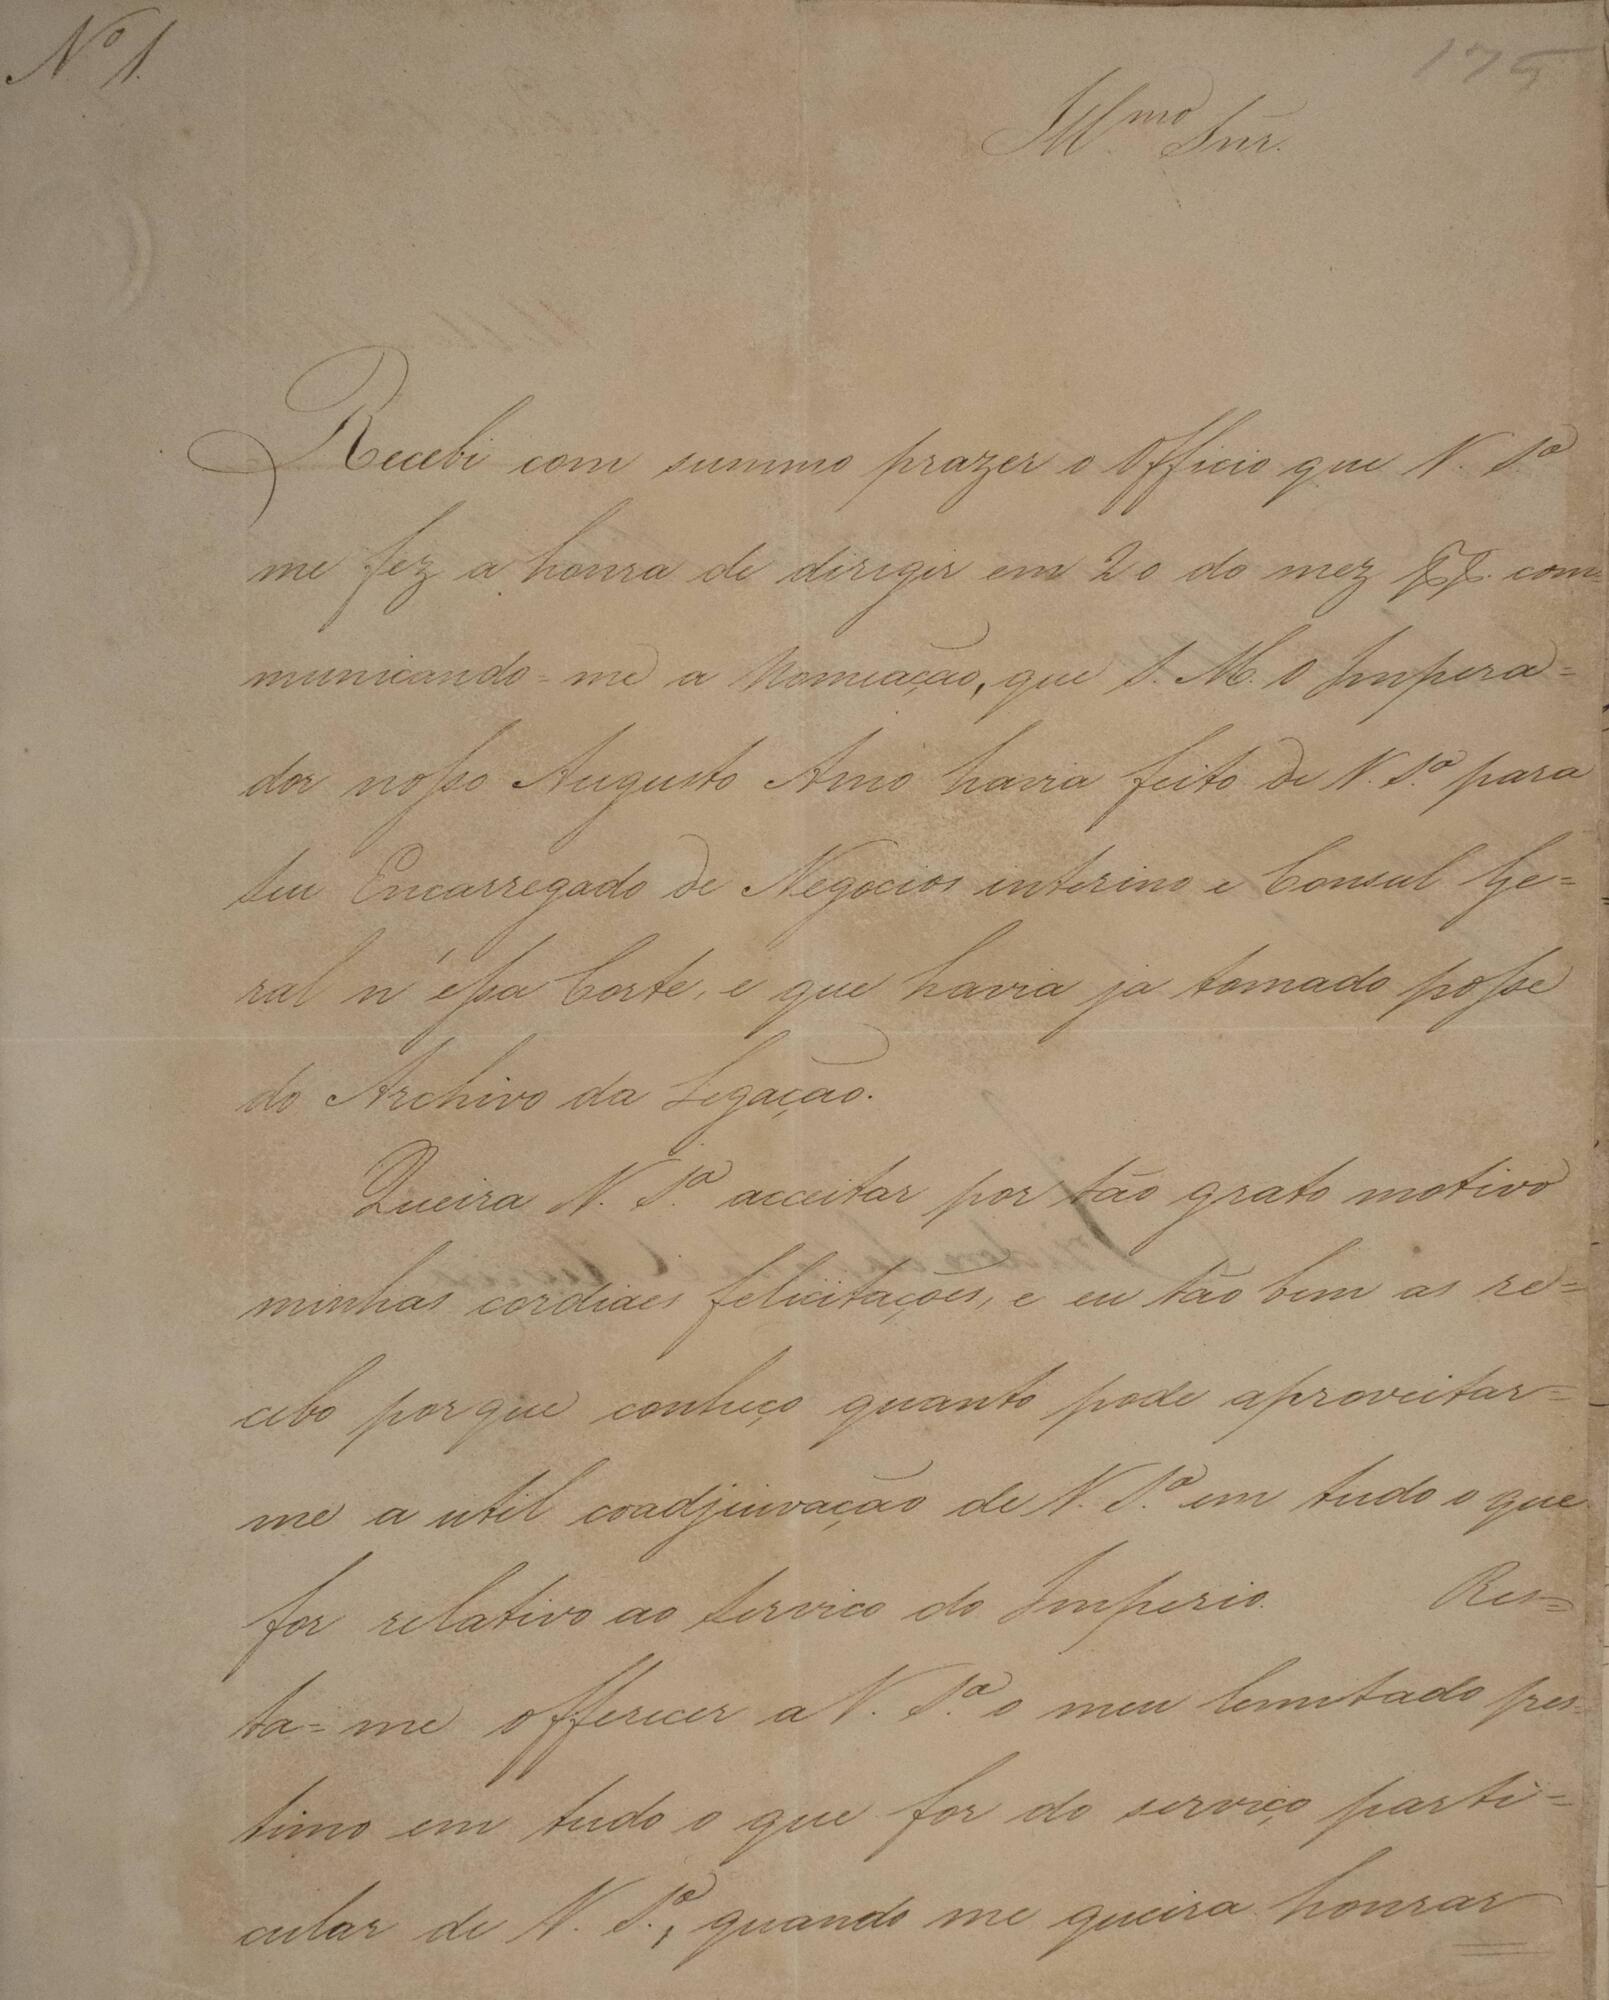 Nº 1.
175
Illmo Snr.
Recebi com summo prazer o Officio que V. Sª
me fez a honra de dirigir em 20 do mez pp. com=
municando=me a Nomeação, que S. M. O Impera=
dor nosso Augusto Amo havia feito de V. Sª para
seu Encarregado de Negocios interino e Consul Ge=
ral n'essa Corte, e que havia ja tomado posse
do Archivo da Legação.
Queira V. Sª acceitar por tão grato motivo
minhas cordiaes felicitações, e eu tão bem as re=
cebo porque conheço quanto pode aproveitar=
me a util coadjuvação de V. Sª em tudo o que
for relativo ao serviço do Imperio. Res=
ta=me offerecer a V. Sª o meu lemitado pres=
timo em tudo o que for do serviço parti=
cular de V. Sª, quando me queira honrar